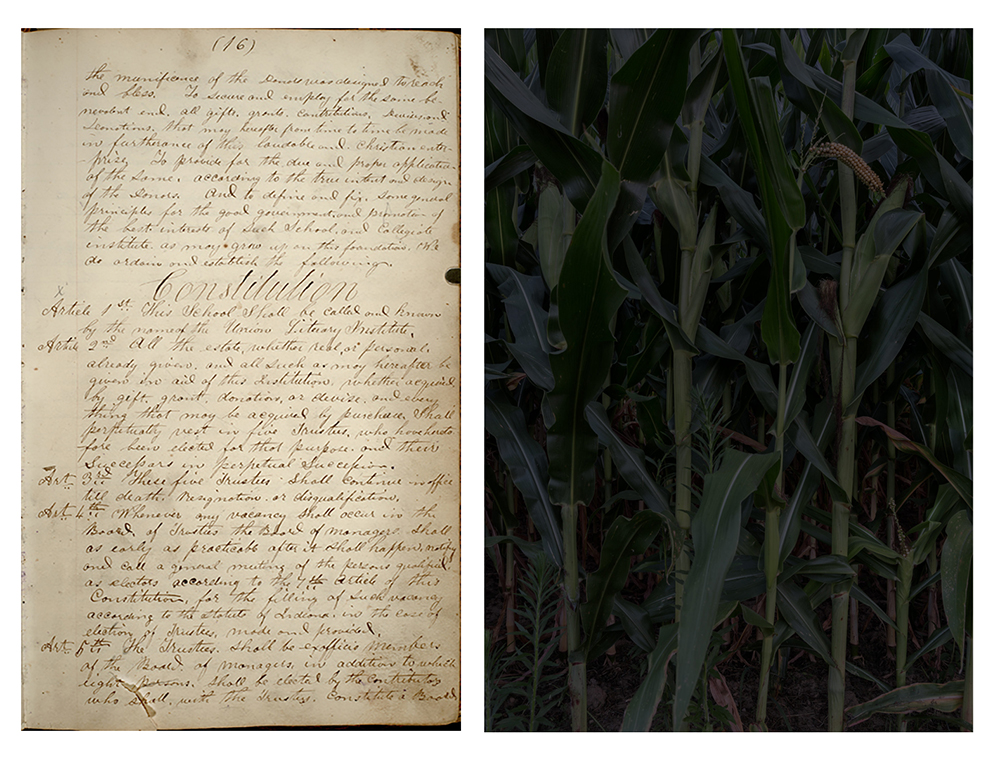 (16)
the munificence of the Donors was designed to reach
and bless. To secure and employ for the same be-
nevolent end, all gifts, grants, contributions, devises, and
Donations, that may hereafter from time to time be made
in furtherance of this laudable and Christian enter-
prise. To provide for the due and proper application
of the Same, according to the true intent and design
of the Donors. And to define and fix, Some general
principles for the good government and promotion of
the best interests of Such School, and Collegiate
institute, as may grow up on this foundation. We
do ordain and establish the following.
Constitution
x
Article 1st This School Shall be called and known
by the name of the Union Literary Institute,
Article 2nd All the estate, whether real, or personal,
already given, and all such as may hereafter be
given in aid of this Institution, whether acquired
by gift, grant, donation, or devise, and every
thing that may be acquired by purchase, Shall
perpetually vest in five Trustees, who have hereto-
fore been elected for that purpose, and their
Successors in perpetual Succession.
Art. 3rd These five Trustees Shall continue in office
till death, resignation, or disqualification,
Art 4th Whenever any vacancy Shall occur in the
Board of Trustees the Board of managers, Shall
as early as practicable after it Shall happen, notify
and call a general meeting of the persons qualified
as electors according to the 7th Article of this
Constitution, for the filling of Such vacancy,
according to the Statute of Indiana, in the case of
election of Trustees, made and provided,
Art. 5th The Trustees. Shall be exofficio Members
of the Board of managers, in addition to which
eight persons. Shall be elected by the Contributors
who Shall, with the Trustees, Constitute a Board